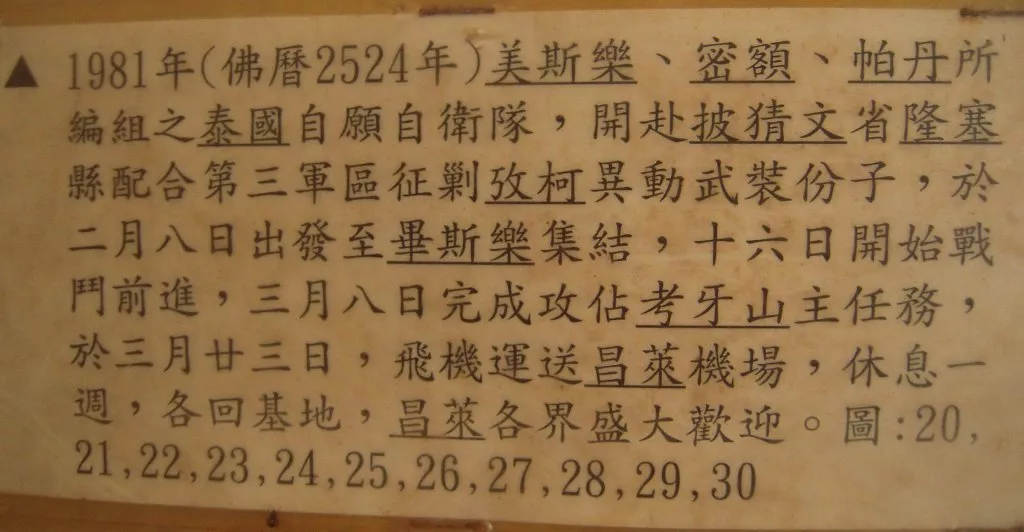 ▲ 1981年(佛曆2524年)美斯樂、密額、帕丹所
編組之泰國自願自衛隊，開赴披猜文省隆塞
縣配合第三軍區征剿孜柯異動武裝份子，於
二月八日出發至畢斯樂集結，十六日開始戰
鬥前進，三月八日完成攻佔考牙山主任務，
於三月廿三日，飛機運送昌萊機場，休息一
週，各回基地，昌萊各界盛大歡迎。圖:20,
21,22,23,24,25,26,27,28,29,30